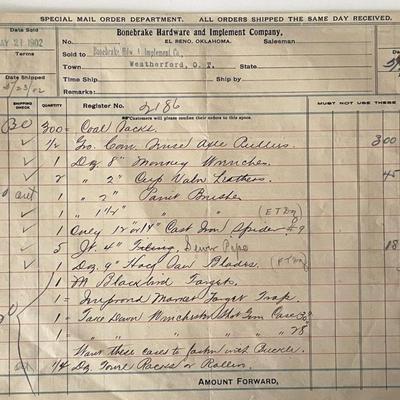 SPECIAL MAIL ORDER DEPARTMENT. ALL ORDERS SHIPPED THE SAME DAY RECEIVED.
Date Sold
Bonebrake Hardware and Implement Company,
MAY 21 1902
No. EL RENO, OKLAHOMA. Salesman
Terms
Sold to Bonebrake Hdw. & Implement Co.,
Town Weatherford, O. T.
Date Shipped
5/23/02
Time Ship Ship by
Remarks:
SHIPPING CHECK
QUANTITY
Register No. 2186
Customers will please confine their orders to this space.
MUST NOT USE THESE
300 Coal Tacks
1/2 Gro. Com. Axle Pullers 300
1 Dz 8" Monkey Wrenches
2 " 2" Cup Valv Leathers 45
1 " 2" Paint Brushes
1 " 1 1/2" " "
1 Only 12" or 14" Cast Iron Spider #9
5 ft. 4" Sewer Pipe 18
1 Dz 9" Hack Saw Blades
1 M Blackbird Targets
1 Improved Target Trap
1 Take Down Winchester Shot Gun Case 30"
1 " " " " " " 28
Want these cases to fasten with Buckle.
1/4 Dz Towel Racks or Rollers
AMOUNT FORWARD,